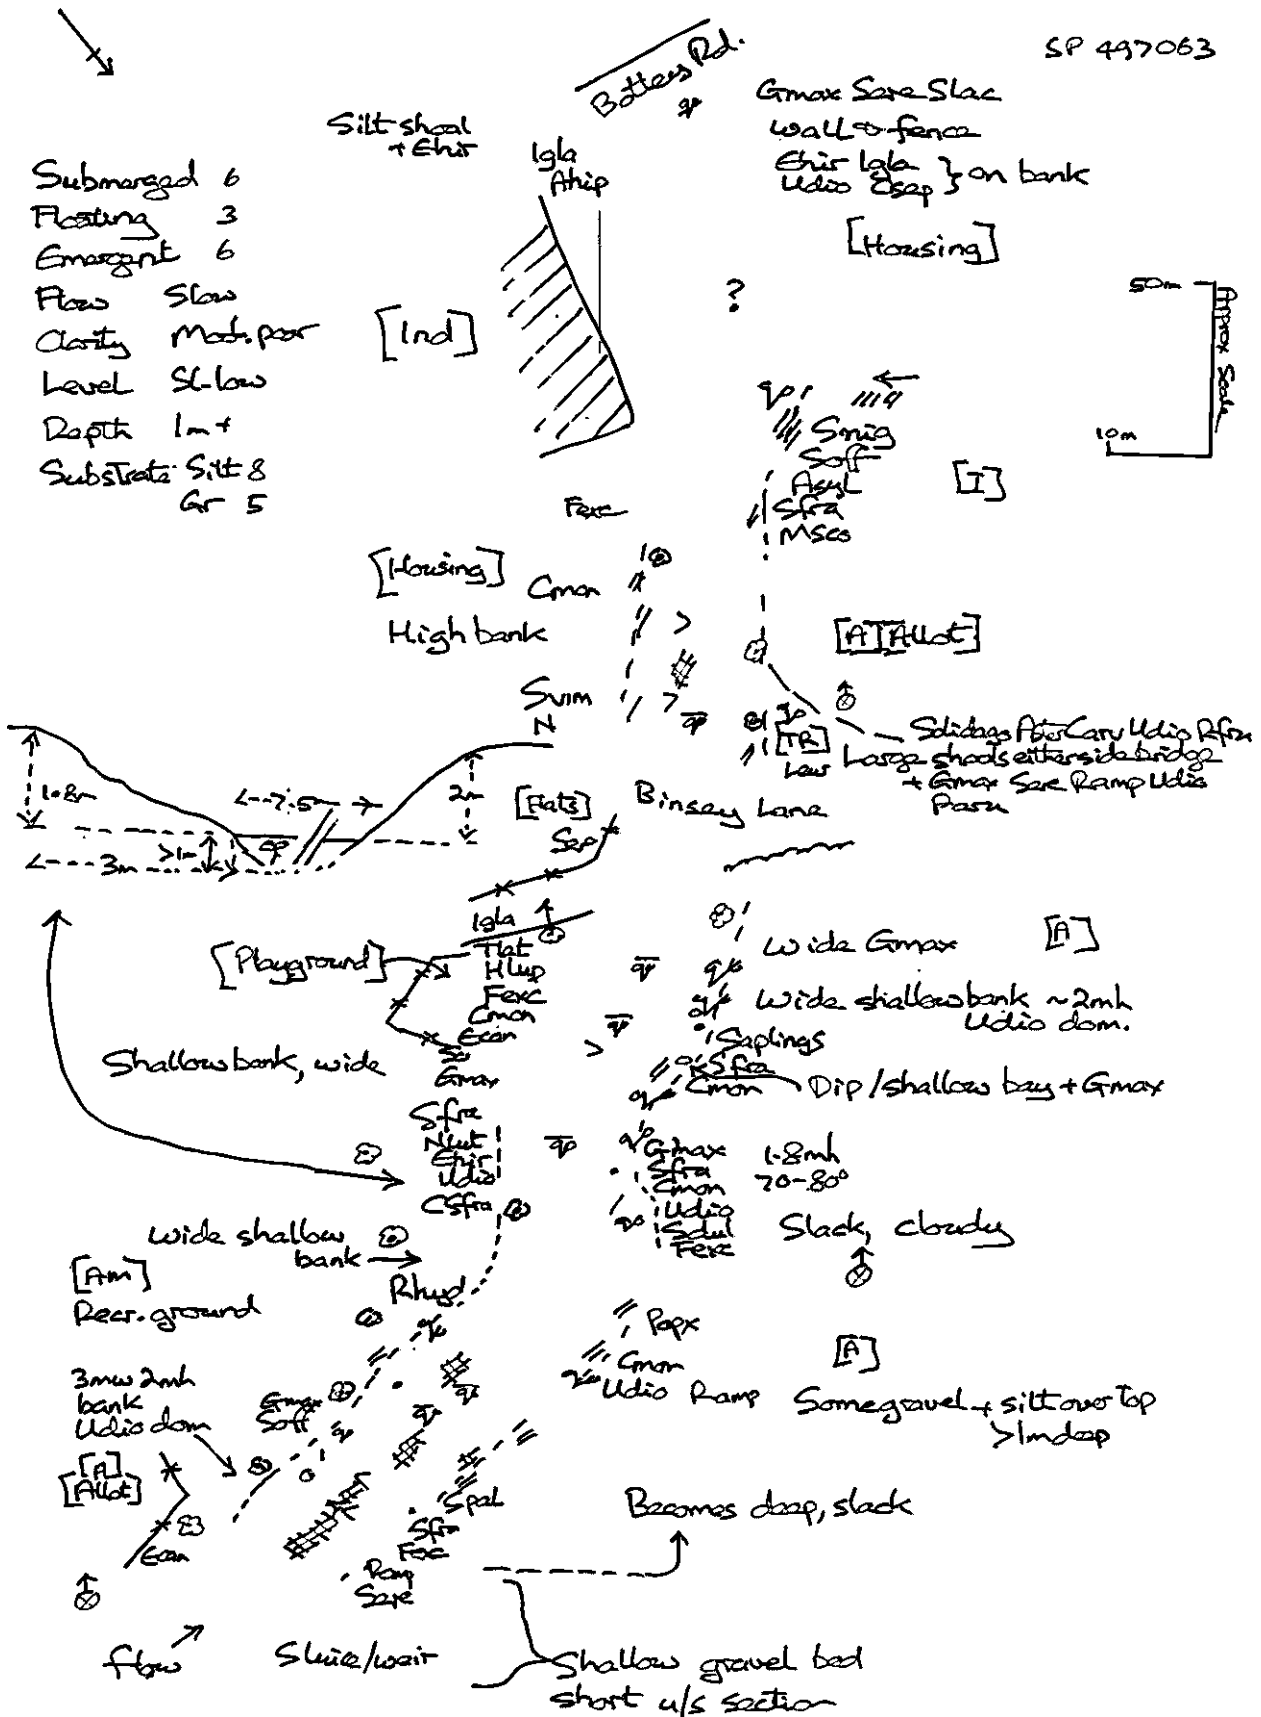 SP 497063
Botley Rd.
Gmax Sare Slac
Wall + fence
Ehir Igla } on bank
Udio Csep
[Housing]
Silt shoal
+ Ehir
Igla
Ahip
Submerged 6
Floating 3
Emergent 6
Flow Slow
Clarity Mod. poor
Level Sl-low
Depth 1m+
Substrate Silt 8
Gr 5
[Ind]
?
50m
Approx Scale
10m
Snig
Soff
Asyl
Sfra
Msco
[I]
Fexc
[Housing]
Cmon
High bank
[A][Allot]
Svim
N
[TR]
Solidago Aster Caru Udio Rfru
Large shoals either side bridge
+ Gmax Sare Ramp Udio
1.8m
<--7.5m-->
2m
>1m
<---3m---
[Flats]
Binsey Lane
Sep
Igla
Tlat
Hlup
Fexc
Cmon
Ecan
Gmax
[Playground]
Wide Gmax
[A]
Wide shallow bank ~2mh
Udio dom.
Saplings
Sfra
Cmon
Dip/shallow bay + Gmax
Shallow bank, wide
Sfra
Nlut
Ehir
Udio
CSfra
Gmax
Sfra
Cmon
Udio
Sdul
Fexc
1.8mh
70-80°
Slack, cloudy
Wide shallow
bank
[Am]
Recr. ground
Rhyd
Popx
Cmon
Udio Ramp
[A]
Some gravel + silt over top
>1m deep
3mw 2mh
bank
Udio dom
Gmax
Soff
[A]
[Allot]
Ecan
Spal
Sfra
Ramp
Sare
Becomes deep, slack
flow
Sluice/weir
Shallow gravel bed
short u/s section